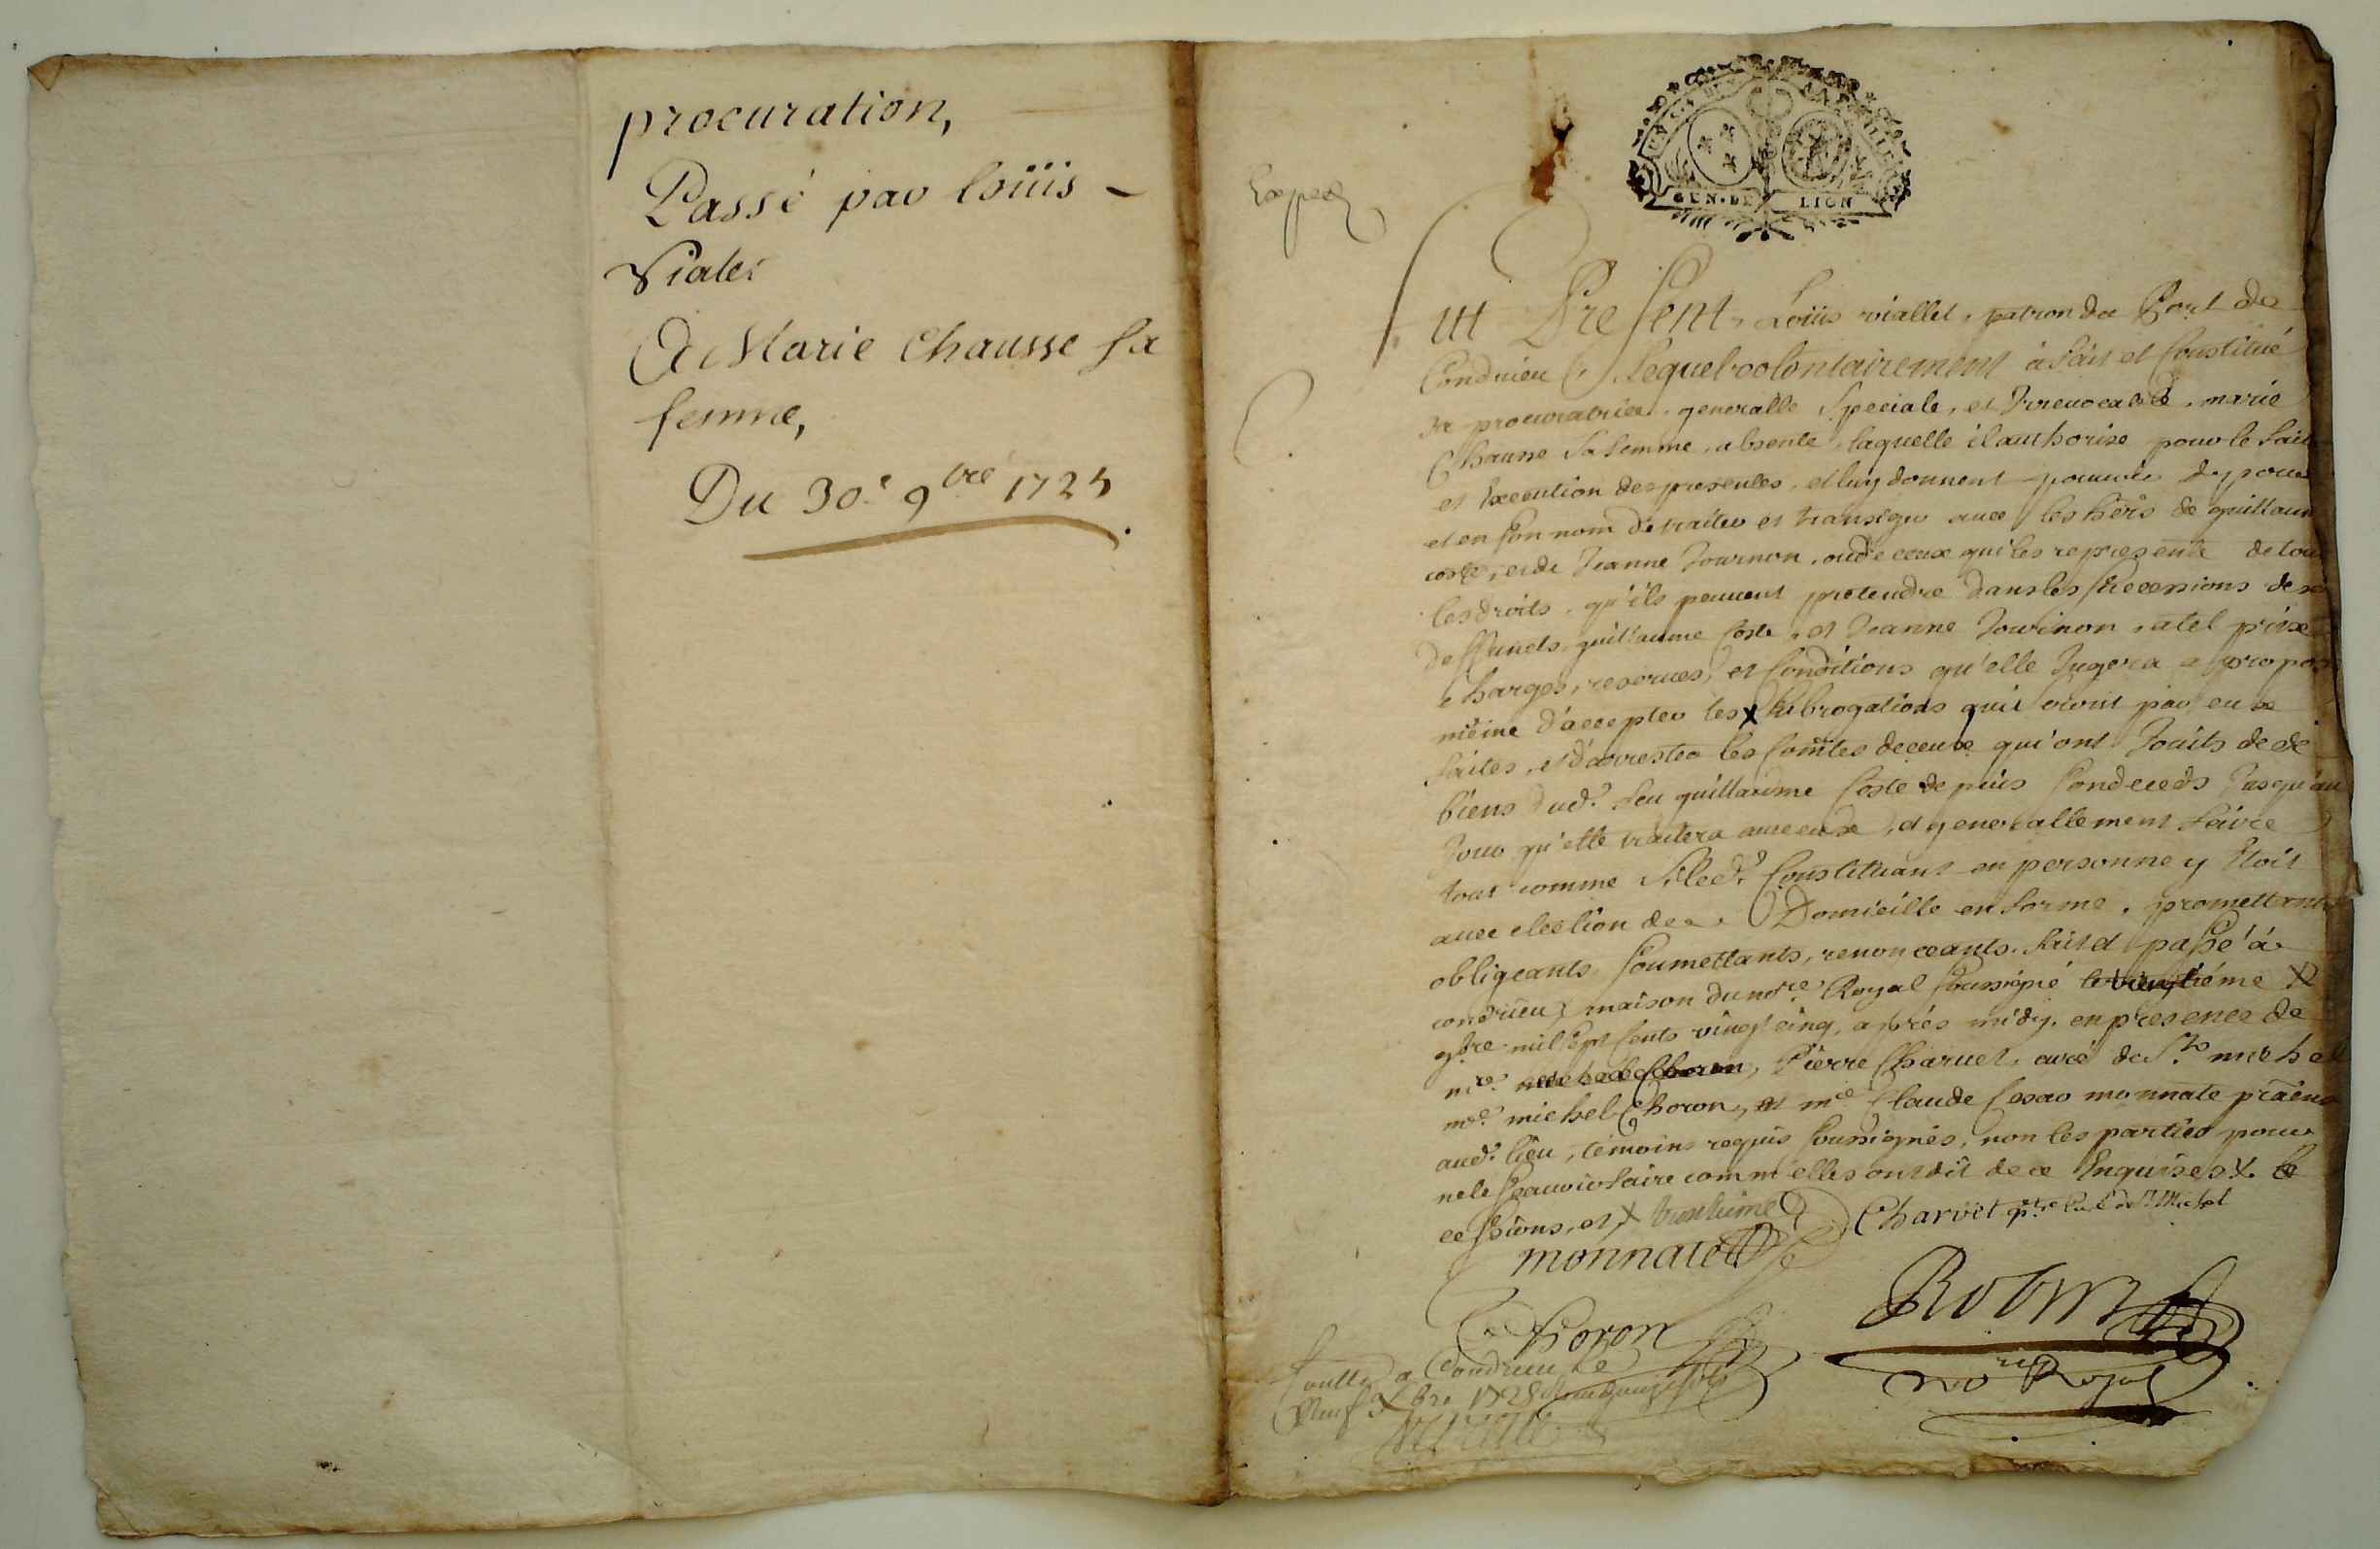 procuration,
Passé par loüis -
Vialet
A Marie Chausse sa
femme,
Du 30.e 9bre 1725
Exped
GEN. DE LION
Fut Present, Loüis viallet, patron du Port de
Condrieu, Lequel volontairement à fait et Constitué
sa procuratrice, generalle speciale, et Irreuocable, marie
Chausse sa femme, absente, laquelle il authorise pour le fait
et Execution des presentes, et luy donnent pouuoir de pour
et en son nom de traiter et transiger auec les hers de guillaume
coste, et de Jeanne Tournon, ou de ceux qui les represente de tous
les droits, qu'ils peuuent pretendre dans les successions desd
deffunets, guillaume Coste, et Jeanne Tournon, a tel prix
charges, reserues, et Conditions qu'elle Jugera a propos
même d'accepter les x subrogations qui seront par eux
faites, et d'arrester les Comtes de ceux qui ont Joüits de
biens dud. feu guillaume Coste depuis son deceds Jusqu'au
Jour qu'elle traitera auec eux, et generallement faire
tout comme si led. Constituant en personne y Etoit
auec election de Domicille en forme, promettants
obligeants, soumettants, renonceants. fait et passé à
condrieu, maison du nore Royal soussigné le vingtiéme x
9bre mil sept cents vingt cinq, aprés midy, en presence de
mre michel Choron, Pierre Charuet, curé de St michel
mre michel Choron, et me Claude Cesar monnate
aud. lieu, témoins requis soussignés, non les parties pour
ne le sçauoir faire comm'elles ont dit de ce Enquises x. le
cessions, et x trentième
Charvet ptre Curé de St Michel
monnate
Choron
Robin
no re Royal
Conttlé a Condrieu le
Neuf Xbre 1725